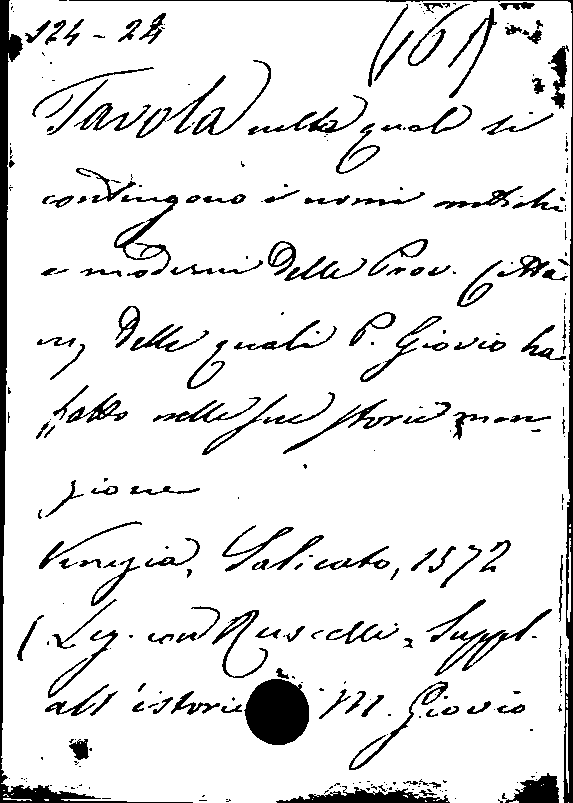 124-24 (161)
Tavola nelle quali si
contengono i nomi antichi
e moderni delle Prov. Città
delle quali P. Giovio ha
fatto nelle sue storie men-
zione
Venezia, Salicato, 1572
(Leg. con Ruscelli, Suppl.
all'istorie M. Giovio